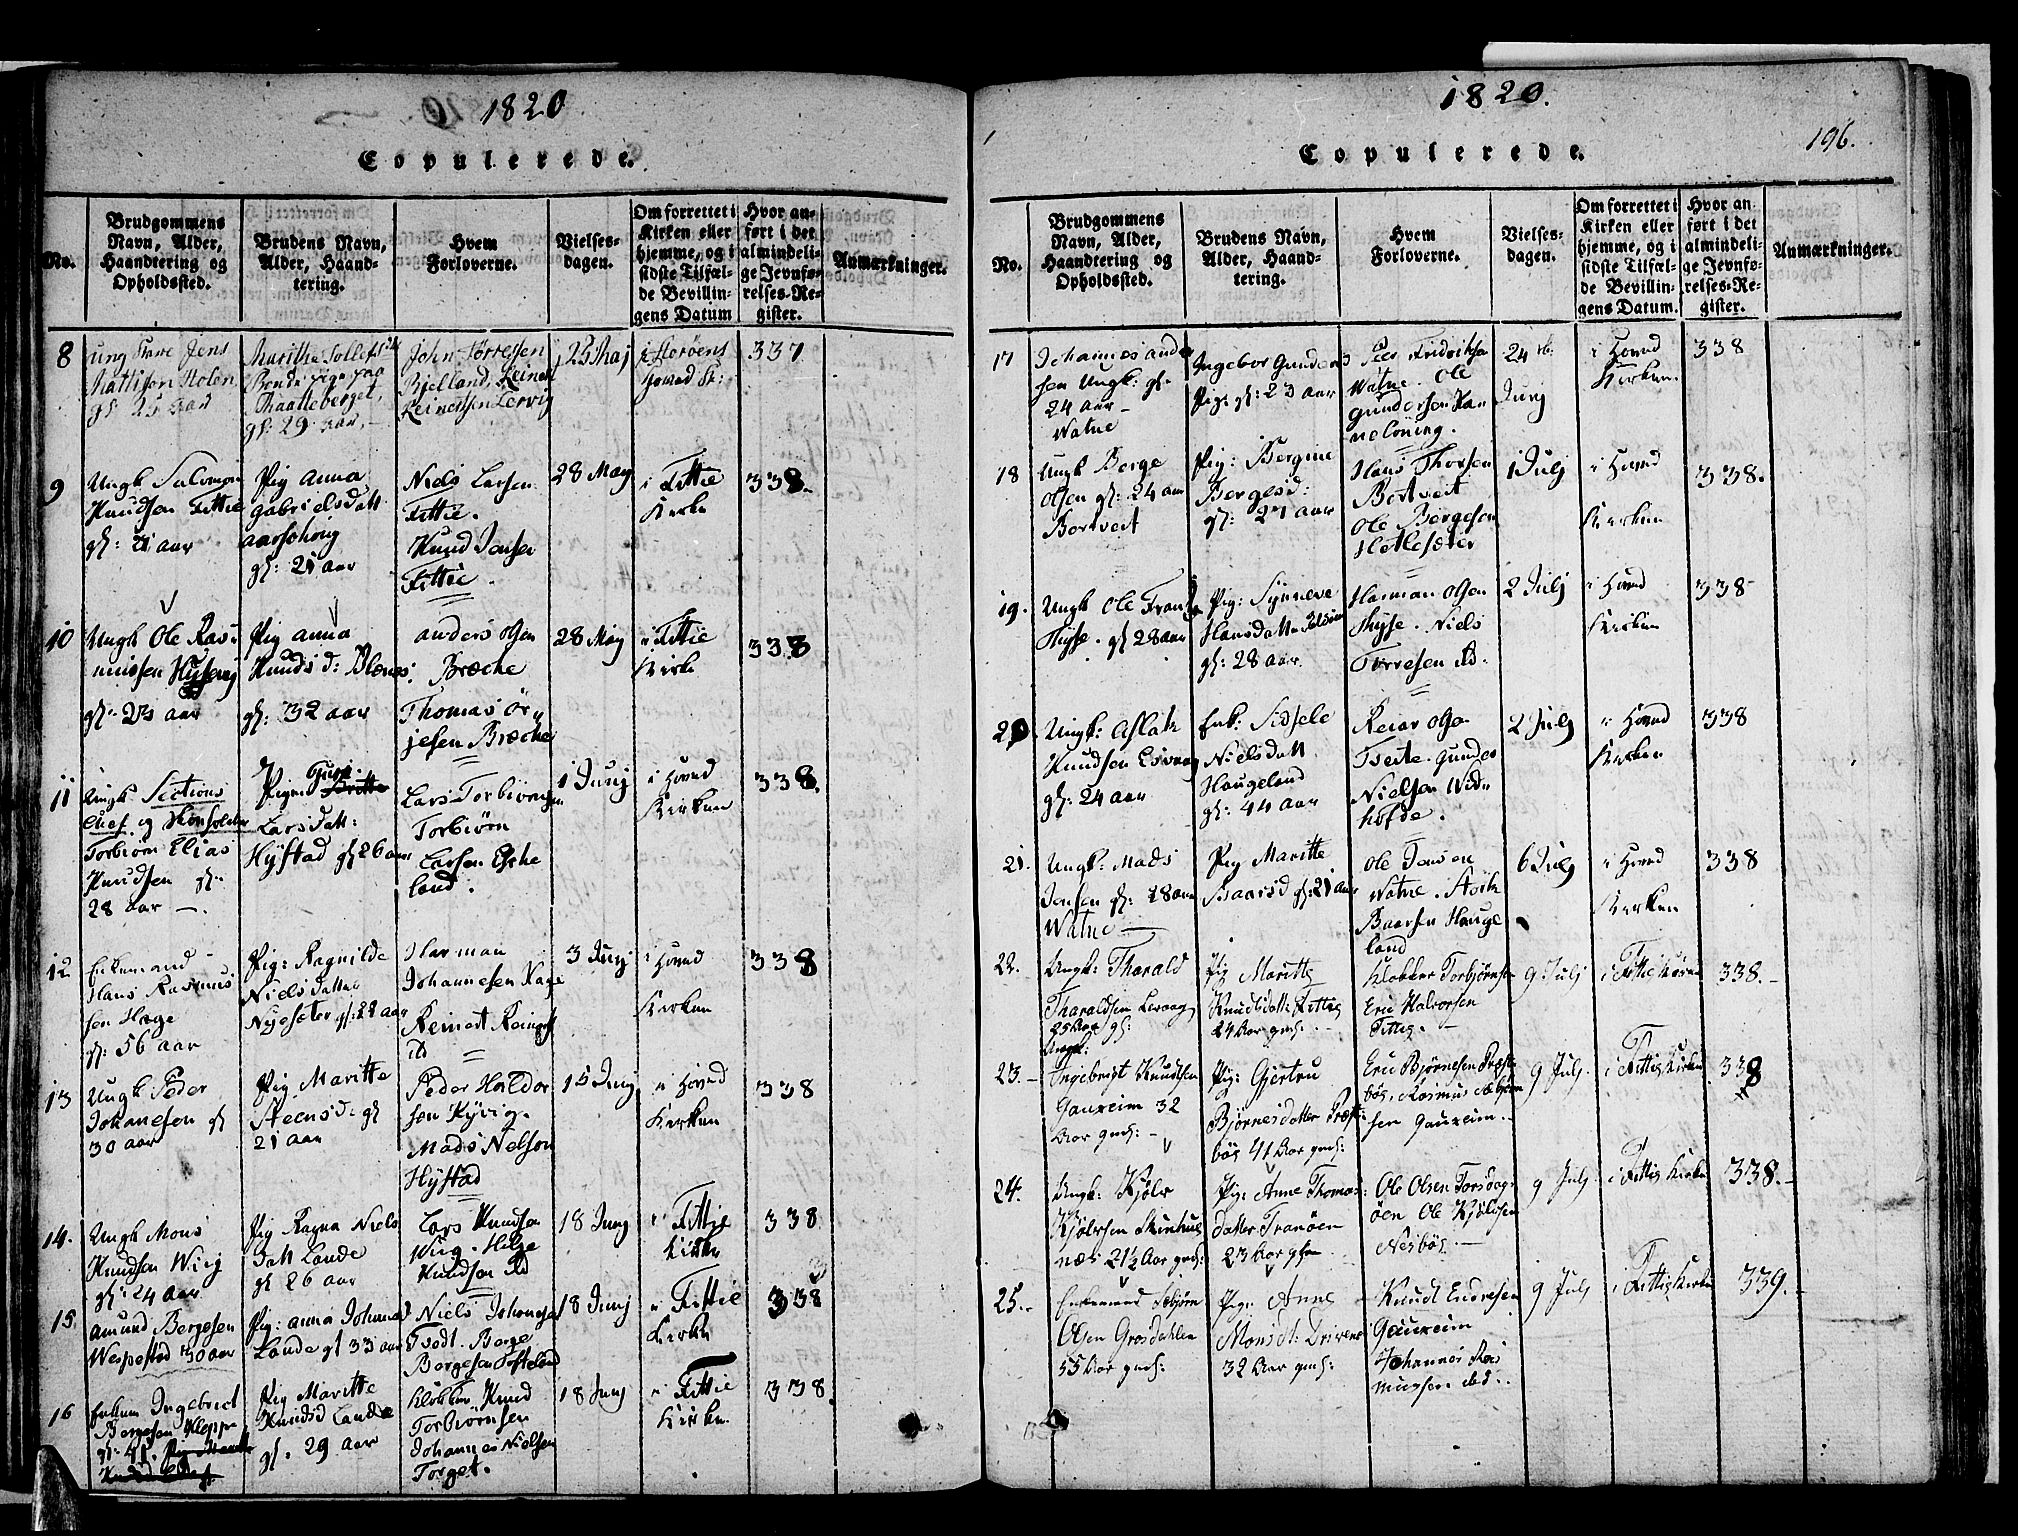 1820
Copulerede.
No.
Brudgommens
Navn, Alder,
Haandtering og
Opholdssted.
Brudens Navn,
Alder, Haand-
tering.
Hvem
Forloverne.
Vielses-
dagen.
Om forrettet i
Kirken eller
hjemme, og i
sidste Tilfæl-
de Bevillin-
gens Datum
Hvor an-
ført i det
almindeli-
ge Jevnfø-
relses-Re-
gister.
Anmærkninger.
8
Ung Jens
Mattison
gl: 25 aar
Maritha Tollefsd
Bonde pige paa
gl: 29 aar,
John Tørressen
Bjelland, Reiner
Reinertsen Lervig
25 Maj
337
9
Ungk Salomon
Knudsen Fittie
gl: 21 aar
Pig Anna
Gabrielsdatt
gl: 21 aar
Niels Larsen
Fittie.
Knud Jensen
Fittie.
28 May
i Fittie
Kirke
338.
10
Ungk Ole Ras-
mussen
gl: 23 aar
Pig Anna
Knudsd:
gl: 32 aar
Anders Olsen
Bræcke
Thomas Ør-
jesen Bræcke
28 May
i Fittie
Kirke
338
11
Ungk Sections
Chef og
Torbiörn Elias
Knudsen gl:
28 aar —.
Pige: Guri
Larsdatt:
Hystad gl 26 aar
Lars Torbiörnsen
Torbiörn
Larsen Eske
land.
1 Junj
i Hoved
Kirken
338.
12
Enkemand
Hans Rasmus
sen Hage
gl: 56 aar
Pig: Ragnilde
Nielsdatter
Nysæter gl: 28 aar
Harman
Johannesen Hage
Reinert Reinert
3 Junj
i Hoved
Kirken
338
13
Ungk Peder
Johanesen gl
30 aar
Pig Maritte
Steensd: gl
21 aar
Peder Haldor
sen Kyvig.
Mads Nelson
Hystad
15 Junj
i Hoved
Kirken
338
14.
Ungk Mons
Knudsen Wiig
gl: 24 aar
Pig Ragna Niels
datt Lande
gl 26 aar
Lars Knudsen
Wiig. Helge
Knudsen
18 Junj
i Fittie
Kirke
338
15
Amund Bergesen
Wespestad 30 aar
Pig: Anna Johannes
Lande gl 33 aar
Niels Johannes
Tvedt. Berge
Bergesen
18 Junj
i Fittie
Kirke
338
16
Enkem Ingebrict
Bergesen Kleppe
gl: 41.
Pig Maritte
Knudsd Lande
gl: 29 aar
Klokker Knud
Torbiörnsen
Johannes Nielsen
Torget.
18 Junj
i Fittie
Kirken
338
1820.
196.
Copulerede.
No.
Brudgommens
Navn, Alder,
Haandtering og
Opholdssted.
Brudens Navn,
Alder, Haand-
tering.
Hvem
Forloverne.
Vielses-
dagen.
Om forrettet i
Kirken eller
hjemme, og i
sidste Tilfæl-
de Bevillin-
gens Datum.
Hvor an-
ført i det
almindeli-
ge Jevnfø-
relses-Re-
gister.
Anmærkninger.
17
Johannes Ander
sen Ungk: gl:
24 aar —
Watne
Ingebor Gunders
Pig: gl: 23 aar
Peer Fridriksen
Watne. Ole
Gundersen
24 de
Junj
i Hoved
Kirken
338
18
Ungk Berge
Olsen gl: 24 aar
Bortveit
Pig: Bergine
Bergesd:
gl: 27 aar
Hans Thorsen
Bortveit
Ole Bergesen
Hetlesæter
1 Julj
i Hoved
Kirken
338.
19.
Ungk Ole Frantz
Thyse. gl 28 aar
Pig: Synneve
Hansdatt
gl: 28 aar.
Harman Olsen
Thyse. Niels
Torresen
2 Julj
i Hoved
Kirken
338
20
Ungk: Aslak
Knudsen
gl: 24 aar
Enk: Sidsele
Nielsdatt
Haugeland
gl: 44 aar
Reiar Olsen
Tveite. Gunder
Nielsen Wid-
hofde.
2 Julj
i Hoved
Kirken
338
21.
Ungk: Mads
Jensen gl: 28 aar
Watne —
Pig Maritte
Baarsd gl: 21 aar
Ole Jensen
Watne.
Baarsen Hauge
land
6 Julj
i Hoved
Kirken
338
22.
Ungk: Tharald
Tharaldsen
25 Aar gl:
Pig Maritte
Knudsdatt: Fittie
24 Aar gml: —
Klokker Torbjørnsen
Eric Halvorsen
Fittie. —
9 Julj
338.
23.
Ungk:
Ingebrigt Knudsen
Gauxeim 32
Aar gml: —
Pig: Gjertru
Bjørnesdatter Præst-
böe 41 Aar gml:
Eric Bjørnesen Præst
böe, Rasmus
sen Gauxeim.
9 Julj.
i Fitties Kirke
338
24.
Ungk: Kjølv
Kjølvsen
næs 21½ Aar gml:
Pig: Anne Thomas-
datter Tranöen
23 Aar
Ole Olsen Torsdag-
öen Ole Kjølvsen
Nesböe. —
9 Julj
i Fitties Kirke
338.
25.
Enkemand
Olsen Grosdahlen
55 Aar gml:
Pig: Anne
Monsdt:
32 Aar gml:
Knudt Endresen
Gauxeim
Johannes Ras
mussen ibd:
9 Julj
i Fitties Kirke
339.